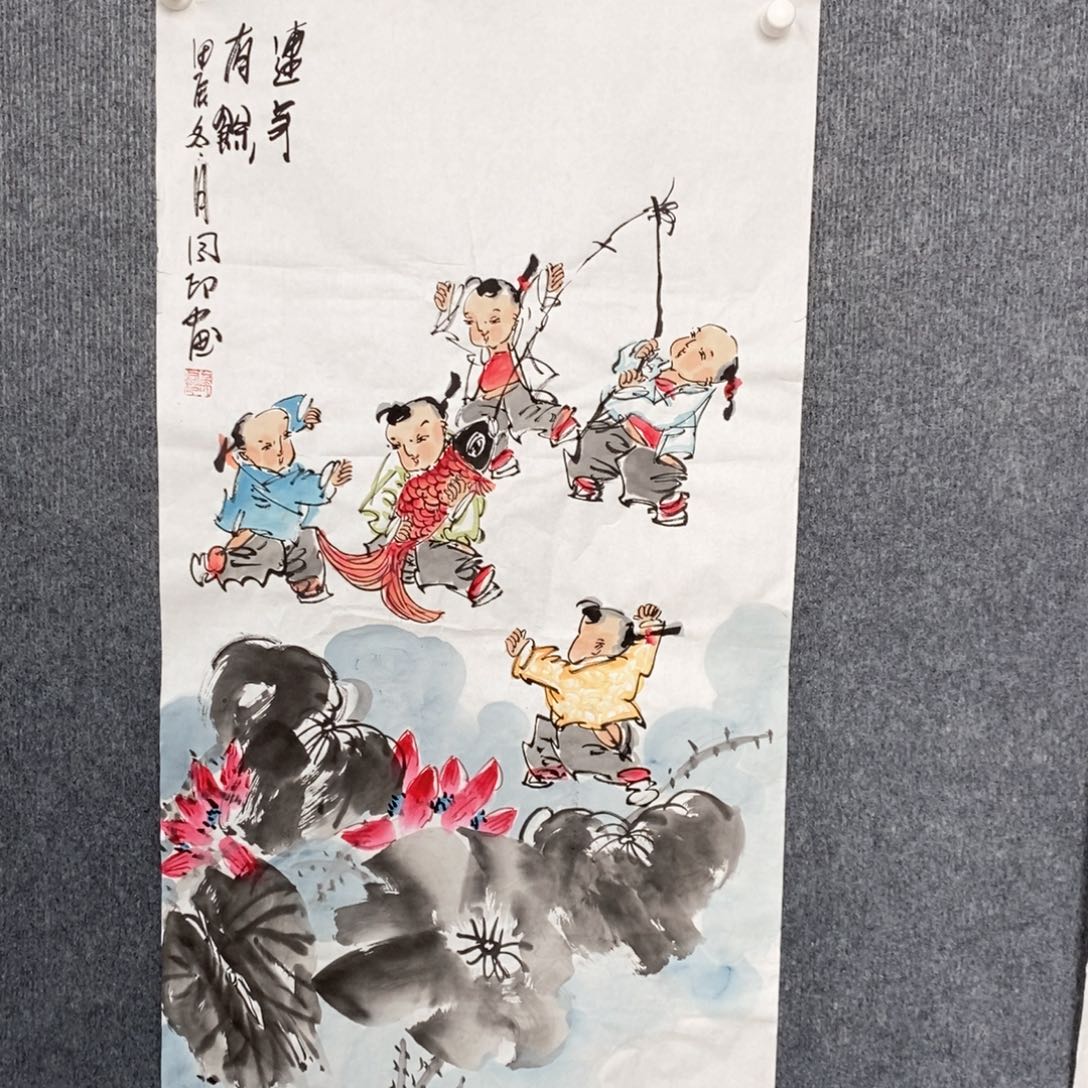 連年
有餘
甲辰冬月国印画